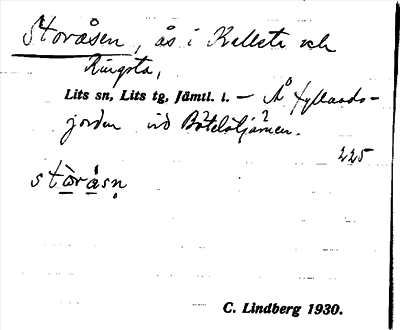 Storåsen, ås i Kallsta och
Ringsta,
Lits sn, Lits tg, Jämtl. l. — Å fyllnads-
jorden vid Båtelstjärnen.
225
stòråsn̥
C. Lindberg 1930.